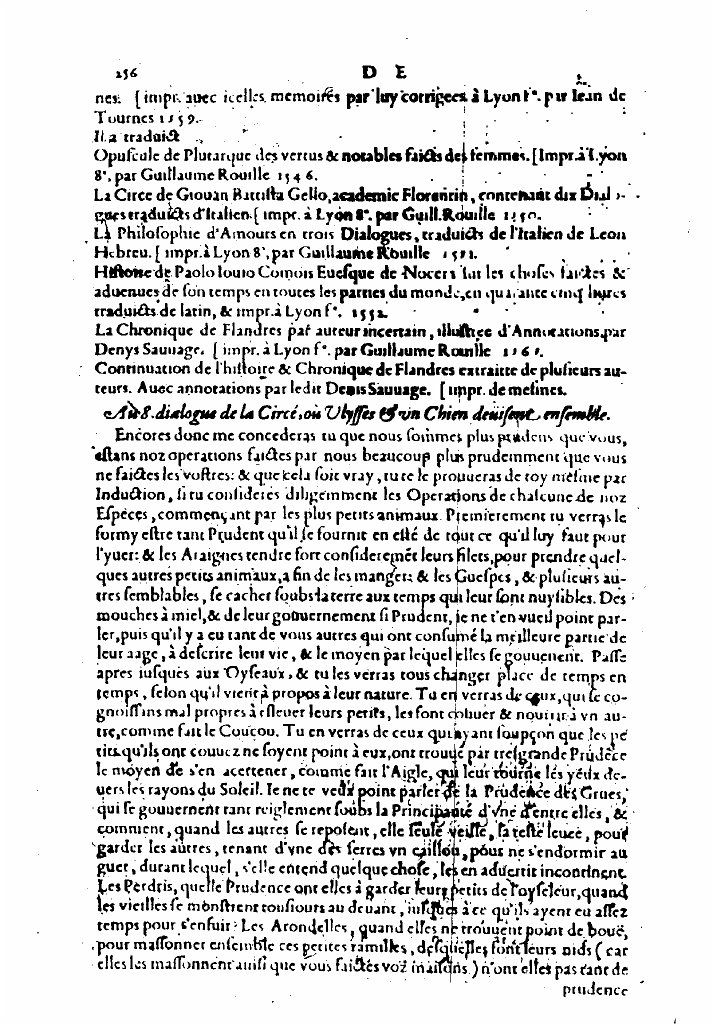 256 D E
nes. [impr. auec icelles memoires par luy corrigees à Lyon f°. par Iean de
Tournes 1559.
Il a traduict
Opuscule de Plutarque des vertus & notables faicts des femmes. [Impr. à Lyon
8°. par Guillaume Rouille 1546.
La Circe de Giouan Battista Gello, academic Florentin, contenant dix Dialo-
gues traduicts d'Italien. [impr. à Lyon 8°. par Guill. Rouille 1550.
La Philosophie d'Amours en trois Dialogues, traduicts de l'Italien de Leon
Hebreu. [impr. à Lyon 8°, par Guillaume Rouille 1551.
Histoire de Paolo Iouio Comois Euesque de Nocera sur les choses faictes &
aduenues de son temps en toutes les parties du monde, en quarante cinq liures
traduicts de latin, & impr. à Lyon f°. 1552.
La Chronique de Flandres par auteur incertain, illustree d'Annotations par
Denys Sauuage. [impr. à Lyon f°. par Guillaume Rouille 1561.
Continuation de l'histoire & Chronique de Flandres extraitte de plusieurs au-
teurs. Auec annotations par ledit Denis Sauuage. [impr. de mesmes.
Au 8. dialogue de la Circé, ou Vlysses & vn Chien deuisent ensemble.
Encores donc me concederas tu que nous sommes plus prudens que vous,
estans noz operations faictes par nous beaucoup plus prudemment que vous
ne faictes les vostres: & que cela soit vray, tu te le prouueras de toy mesme par
Induction, si tu consideres diligemment les Operations de chascune de noz
Especes, commençant par les plus petits animaux. Premierement tu verras le
formy estre tant Prudent qu'il se fournit en esté de tout ce qu'il luy faut pour
l'yuer: & les Araignes tendre fort consideremēt leurs filets, pour prendre quel-
ques autres petits animaux, a fin de les manger: & les Guespes, & plusieurs au-
tres semblables, se cacher soubs la terre aux temps qui leur sont nuysibles. Des
mouches à miel, & de leur gouuernement si Prudent, ie ne t'en vueil point par-
ler, puis qu'il y a eu tant de vous autres qui ont consumé la meilleure partie de
leur aage, à descrire leur vie, & le moyen par lequel elles se gouuernent. Passe
apres iusques aux Oyseaux, & tu les verras tous changer place de temps en
temps, selon qu'il vient à propos à leur nature. Tu en verras de ceux, qui se co-
gnoissans mal propres à esleuer leurs petits, les font couuer & nourrir à vn au-
tre, comme fait le Coucou. Tu en verras de ceux qui ayant soupçon que les pe
tits qu'ils ont couuez ne soyent point à eux, ont trouué par tresgrande Prudēce
le moyen de s'en acertener, comme fait l'Aigle, qui leur tourne les yeux de-
uers les rayons du Soleil. Ie ne te veux point parler de la Prudēce des Grues,
qui se gouuernent tant reiglement soubs la Principauté d'vne d'entre elles, &
comment, quand les autres se reposent, elle seule veille, sa teste leuee, pour
garder les autres, tenant d'vne des serres vn caillou, pour ne s'endormir au
guet, durant lequel, s'elle entend quelque chose, les en aduertit incontinent.
Les Perdris, quelle Prudence ont elles à garder leurs petits de l'oyseleur, quand
les vieilles se monstrent tousiours au deuant, iusques à ce qu'ils ayent eu assez
temps pour s'enfuir? Les Arondelles, quand elles ne trouuent point de bouë,
pour massonner ensemble ces petites ramilles, desquelles sont leurs nids (car
elles les massonnent ausi que vous faictes voz maisons) n'ont elles pas tant de
prudence